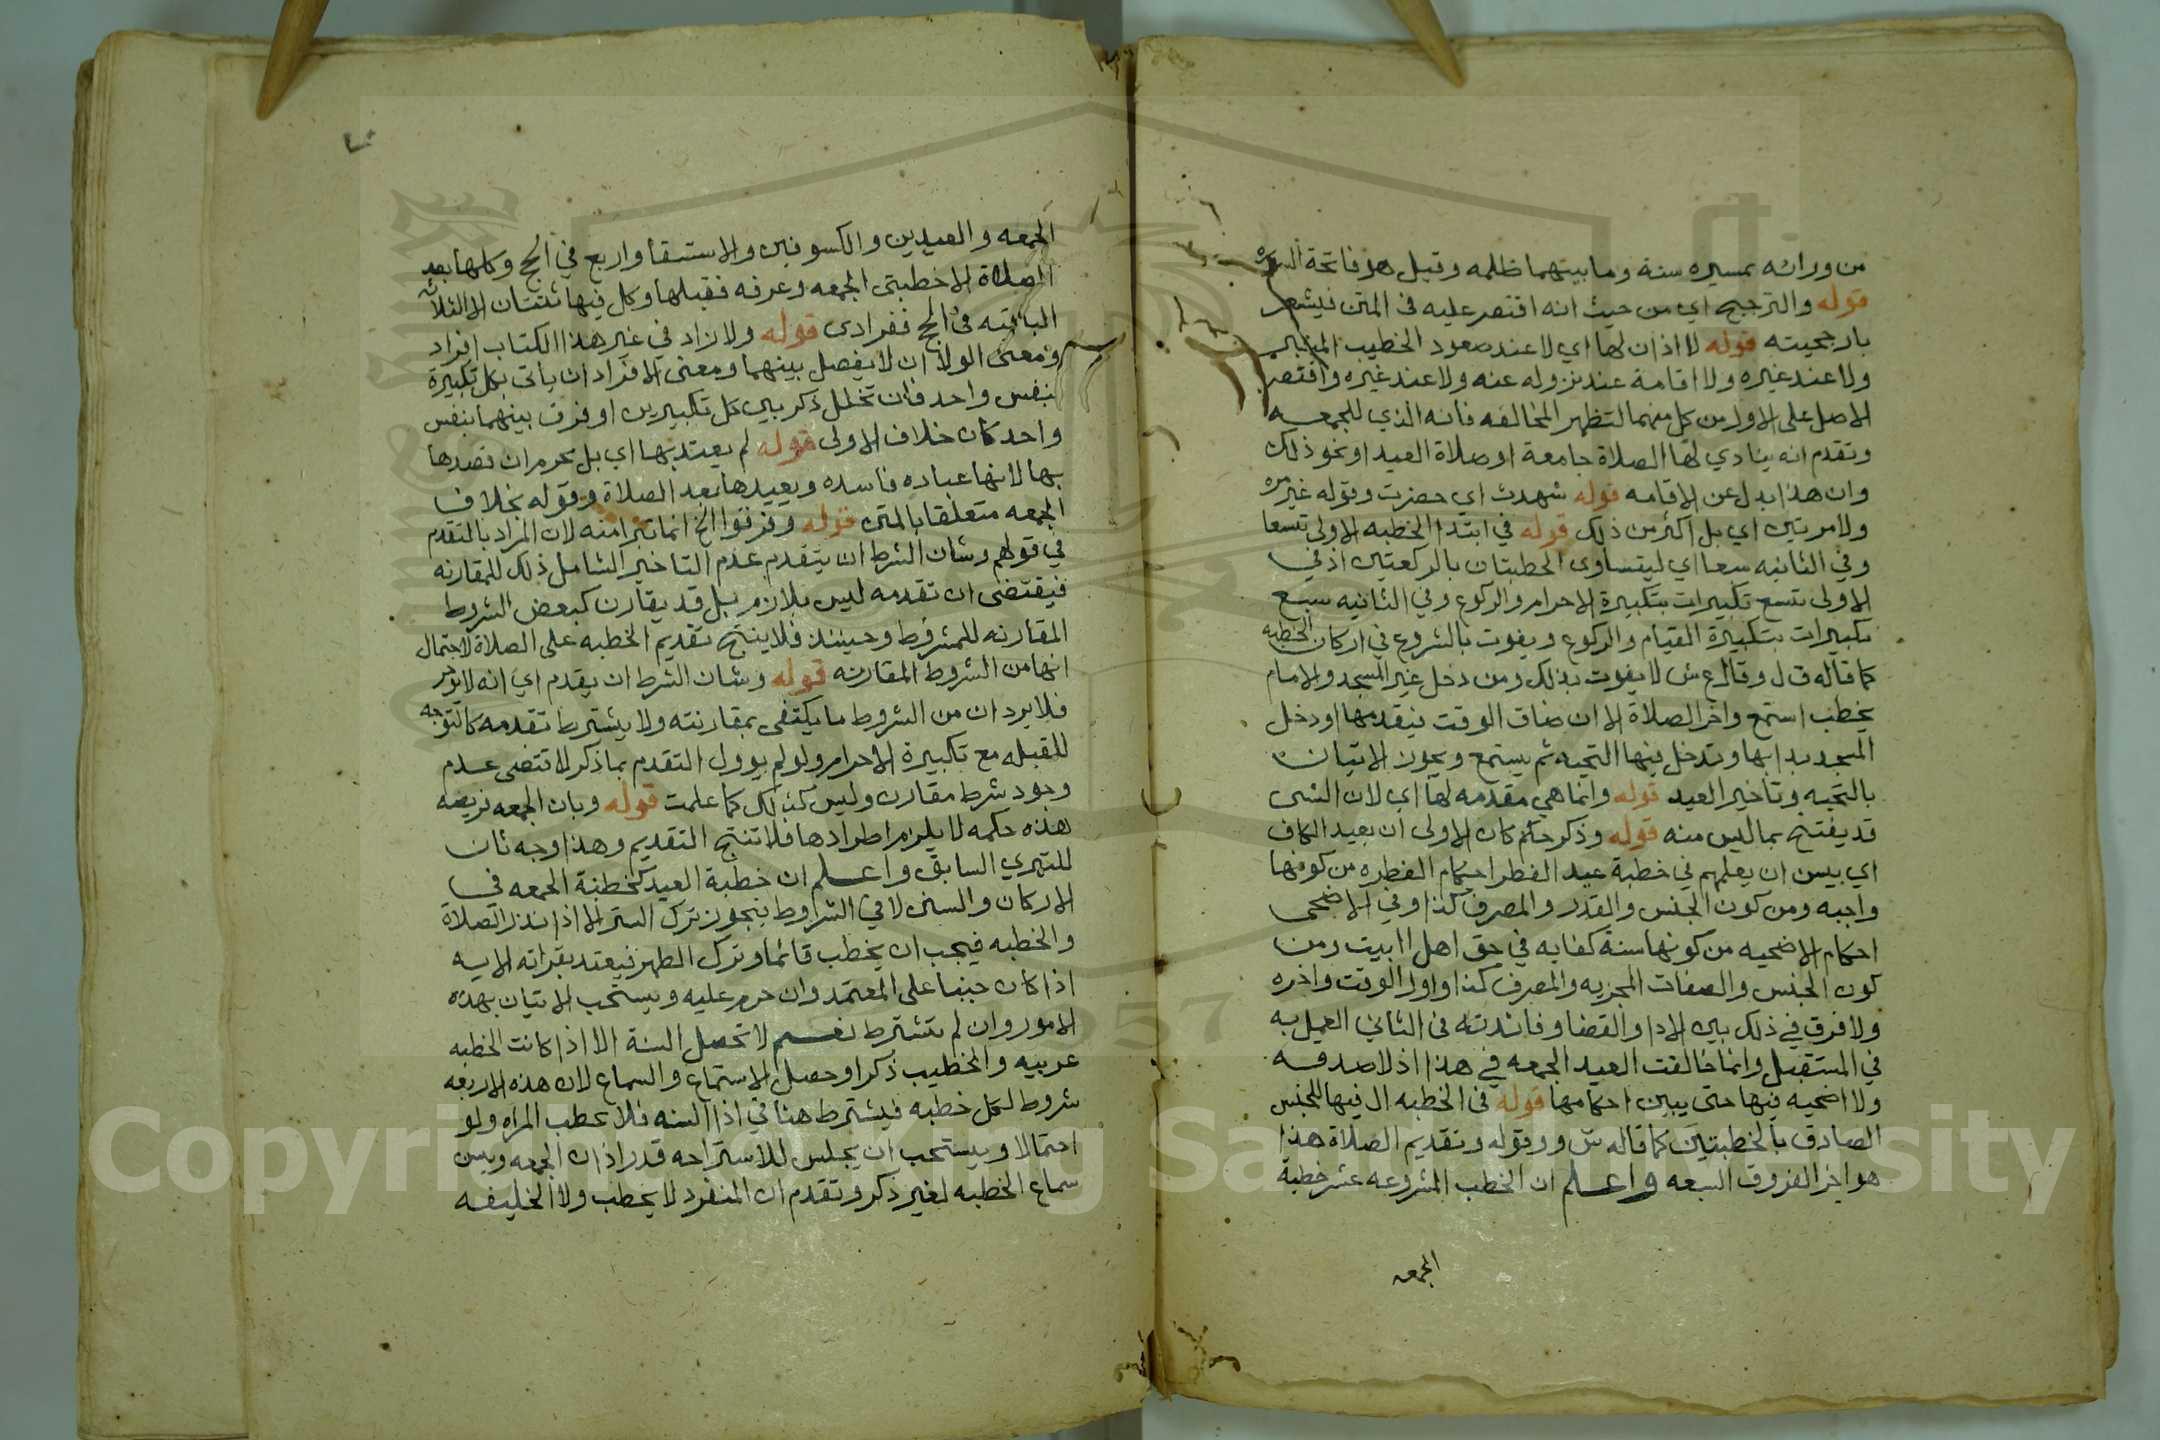 من ورائه بمسيره سنة وما بينهما ظلمه وقيل هو فاتحة
قوله والترجيح اي من حيث انه اقتصر عليه في المتن فيشعر
بارجحيته قوله لا اذان لها اي لا عند صعود الخطيب المنبر
ولا عند غيره ولا اقامة عند نزوله عنه ولا عند غيره واقتصر
الاصل على الاول من كل منهما لتظهر المخالفه فانه الذي للجمعه
وتقدم انه ينادي لها الصلاة جامعة او صلاة العيد او نحو ذلك
وان هذا بدل عن الاقامه قوله شهدت اي حضرت وقوله غير مره
ولا مرتين اي بل اكثر من ذلك قوله في ابتدا الخطبه الاولى تسعا
وفي الثانيه سبعا اي ليتساوى الخطبتان بالركعتين اذ في
الاولى تسع تكبيرات بتكبيرة الاحرام والركوع وفي الثانيه سبع
تكبيرات بتكبيرة القيام والركوع ويفوت بالشروع في اركان الخطبه
كما قاله ق ل وقال ع ش لا يفوت بذلك ومن دخل غير المسجد والامام
يخطب استمع واخر الصلاة الا ان ضاق الوقت فيقدمها او دخل
المسجد بدا بها وتدخل فيها التحيه ثم يستمع ويجوز الاتيان
بالتحيه وتاخير العيد قوله وانما هي مقدمه لها اي لان الشي
قد يفتتح بما ليس منه قوله وذكر حكم كان الاولى ان يعيد الكاف
اي يسن ان يعلمهم في خطبة عيد الفطر احكام الفطره من كونها
واجبه ومن كون الجنس والقدر والمصرف كذا وفي الاضحى
احكام الاضحيه من كونها سنة كفايه في حق اهل البيت ومن
كون الجنس والصفات المجزيه والمصرف كذا واول الوقت واخره
ولا فرق في ذلك بين الادا والقضا وفائدته في الثاني العمل به
في المستقبل وانما خالفت العيد الجمعه في هذا اذ لا صدقه
ولا اضحيه فيها حتى يبين احكامها قوله في الخطبه ال فيها للجنس
الصادق بالخطبتين كما قاله ش وقوله وتقديم الصلاة هذا
هو اخر الفروق السبعه واعلم ان الخطب المشروعه عشر خطبة
الجمعه
الجمعه والعيدين والكسوفين والاستسقا واربع في الحج وكلها بعد
الصلاة الا خطبتي الجمعه وعرفه فقبلها وكل فيها ثنتان الا الثلاثه
الباقيه في الحج ففرادى قوله ولا زاد في غير هذا الكتاب افراد
ومعنى الولا ان لا يفصل بينهما ومعنى الافراد ان ياتي بكل تكبيرة
بنفس واحد فان تخلل ذكر بين كل تكبيرين او فرق بينهما بنفس
واحد كان خلاف الاولى قوله لم يعتد بها اي بل يحرم ان قصدها
بها لانها عباده فاسده ويعيدها بعد الصلاة وقوله بخلاف
الجمعه متعلقا بالمتن قوله وفرقوا الخ انما تبرا منه لان المراد بالتقدم
في قولهم وشان الشرط ان يتقدم عدم التاخير الشامل ذلك للمقارنه
فيقتضى ان تقدمه ليس بلازم بل قد يقارن كبعض الشروط
المقارنه للمشروط وحينئذ فلا ينتج تقديم الخطبه على الصلاة لاحتمال
انها من الشروط المقارنه قوله وشان الشرط ان يقدم اي انه لا يوخر
فلا يرد ان من الشروط ما يكتفي بمقارنته ولا يشترط تقدمه كالتوجه
للقبله مع تكبيرة الاحرام ولو لم يوول التقدم بما ذكر لاقتضى عدم
وجود شرط مقارن وليس كذلك كما علمت قوله وبان الجمعه فريضه
هذه حكمه لا يلزم اطرادها فلا تنتج التقديم وهذا وجه ثان
للتبري السابق واعلم ان خطبة العيد كخطبة الجمعه في
الاركان والسنن لا في الشروط فيجوز ترك الستر الا اذا نذر الصلاة
والخطبه فيجب ان يخطب قائما وترك الطهر فيعتد بقراته الايه
اذا كان جنبا على المعتمد وان حرم عليه ويستحب الاتيان بهذه
الامور وان لم تشترط نعم لا تحصل السنة الا اذا كانت الخطبه
عربيه والخطيب ذكرا وحصل الاستماع والسماع لان هذه الاربعه
شروط لكل خطبه فيشترط هنا في ادا السنه فلا تخطب المراه ولو
احتمالا ويستحب ان يجلس للاستراحه قدر اذان الجمعه ويسن
سماع الخطبه لغير ذكر وتقدم ان المنفرد لا يخطب ولا الخليفه
Copyright © King Saud University
1957